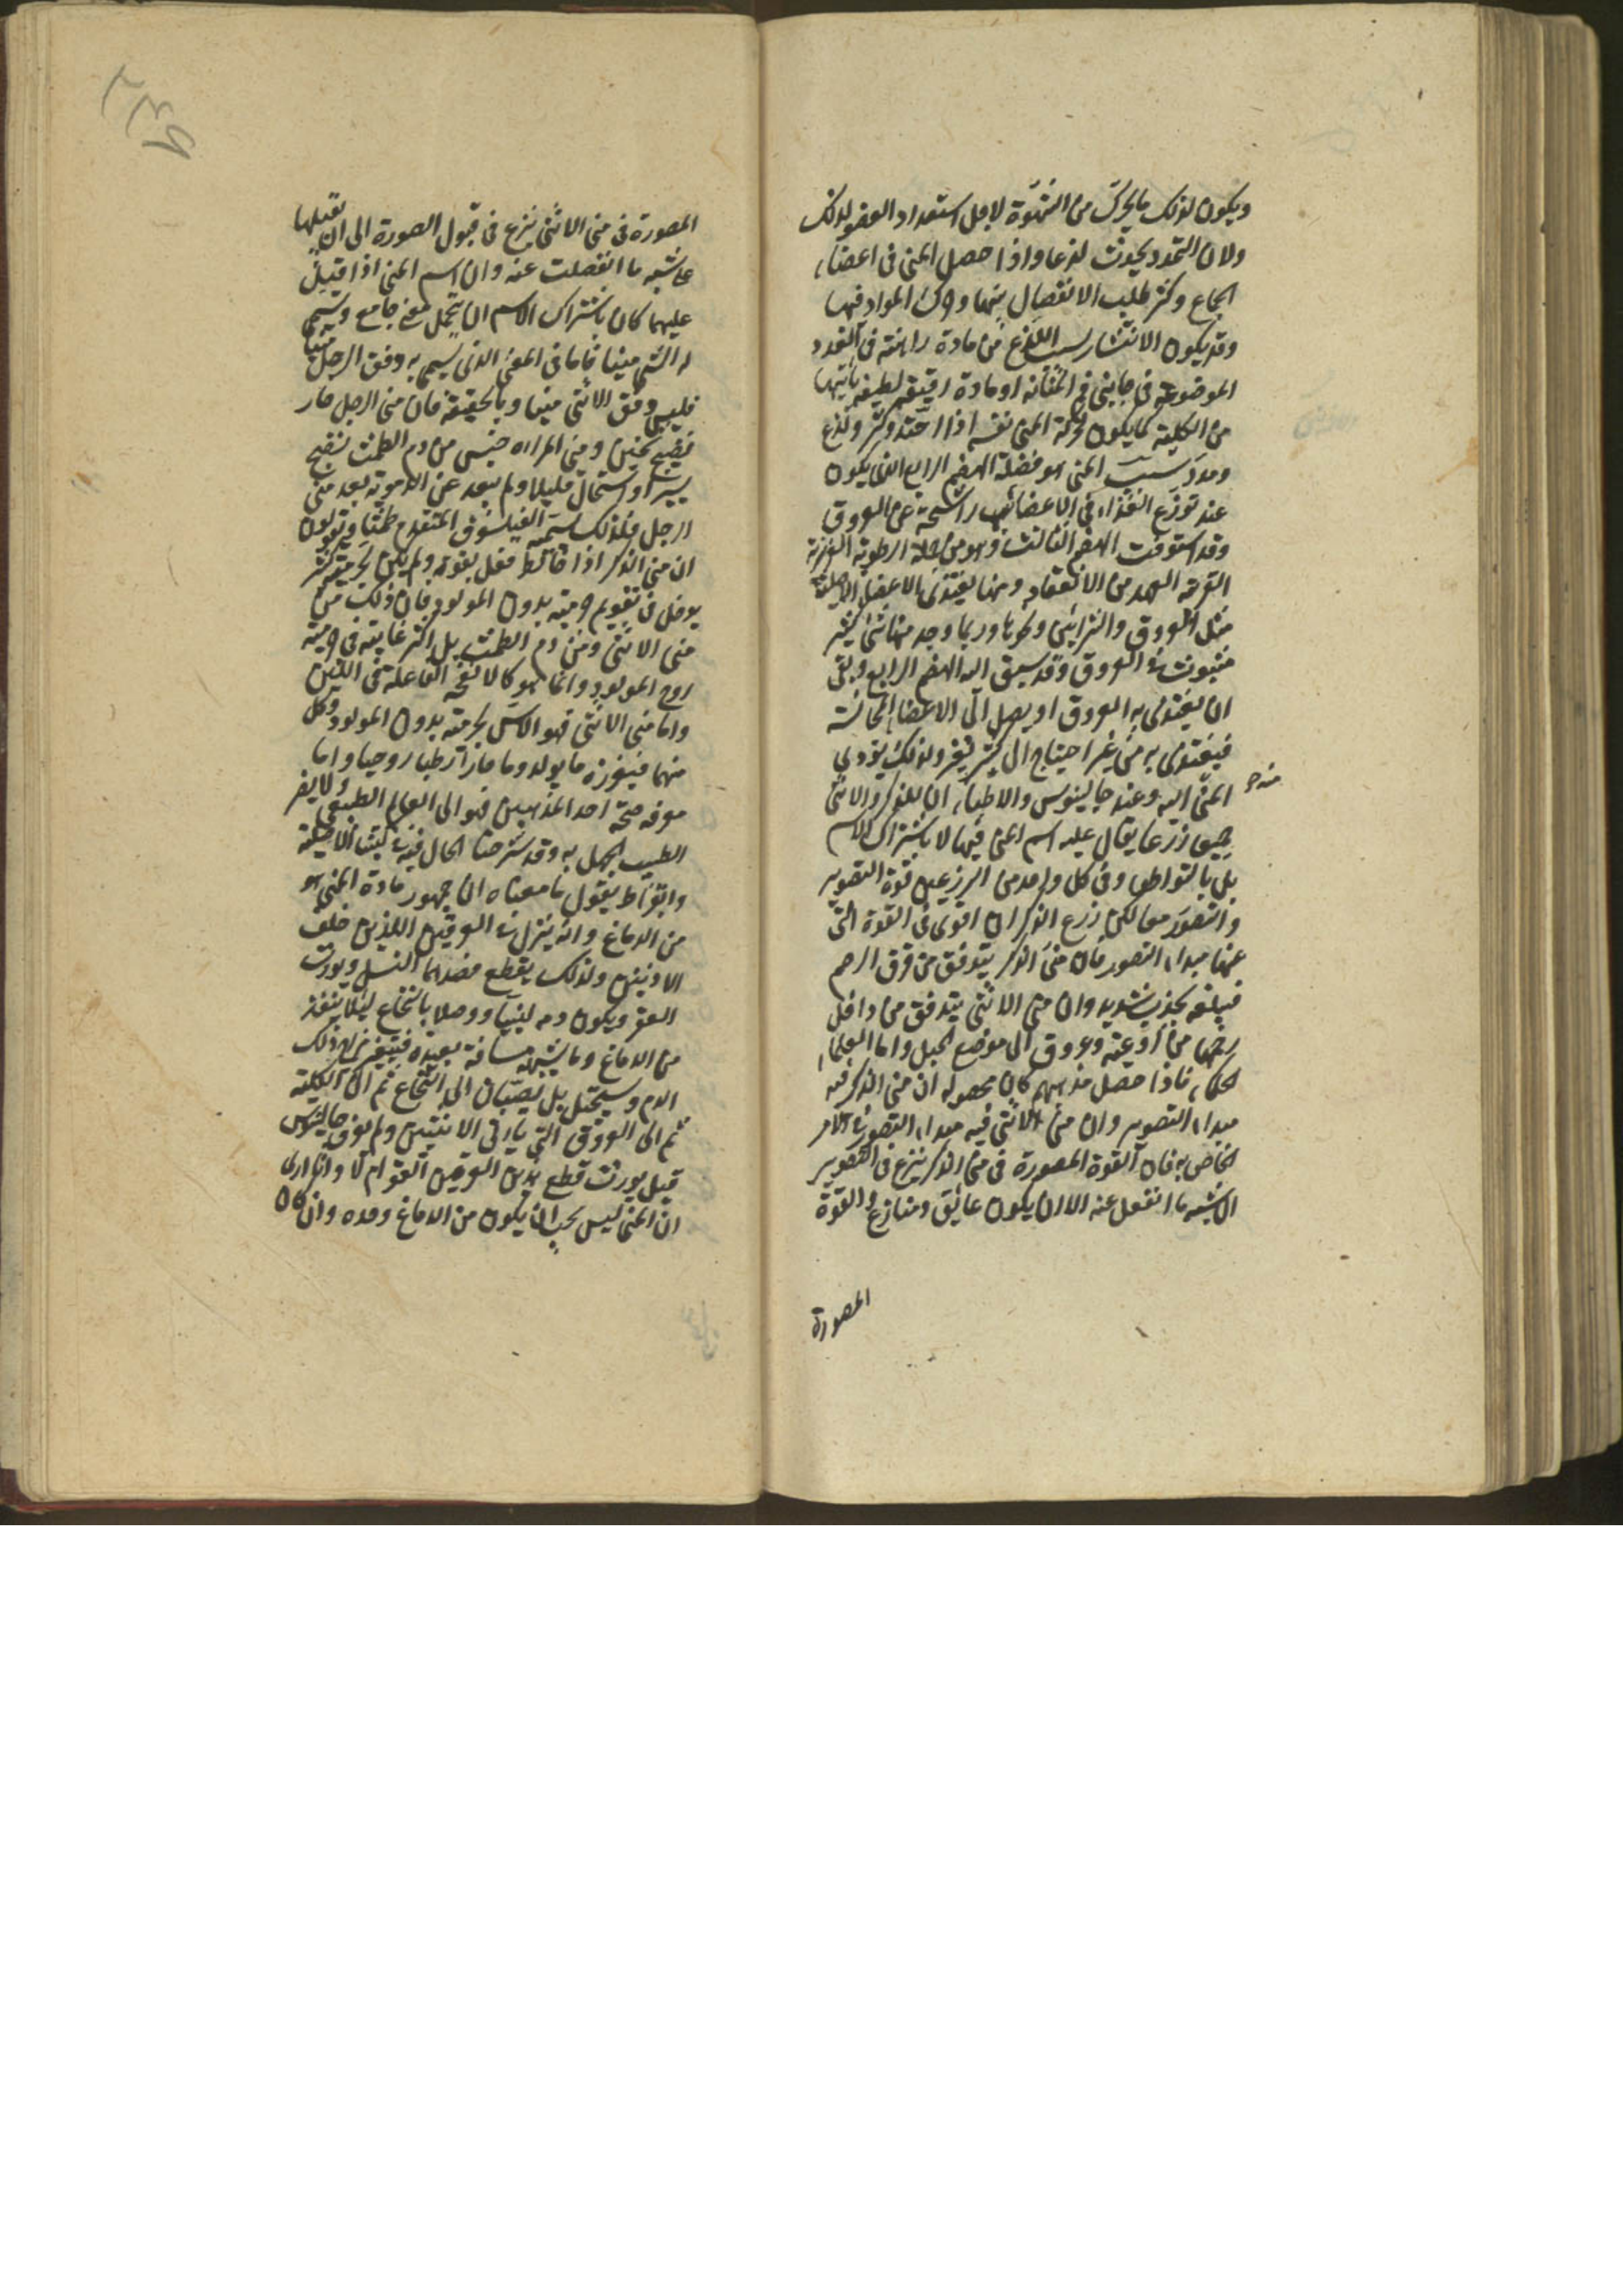 ويكون لذلك ما يحرك من الشهوة لاجل استعداد العضو لذلك
ولان التمدد يحدث لذعا واذا حصل المنى فى اعضاء
الجماع وكثر طلب الانفصال منها وحرك المواد فيها
وقد يكون الانتشار بسبب اللذع من مادة راهنة فى الغدد
الموضوعة فى جانبى فم المثانة او مادة رقيقة لطيفة ياتيها
من الكلية كما يكون لحركة المنى نفسه اذا احتد وكثر ولذع
ومدد سبب المنى هو فضلة الهضم الرابع الذى يكون
عند توزع الغذاء فى الاعضاء راشحة عن العروق
وقد استوفت الهضم الثالث وهو من جملة الرطوبة الغريزية
القريبة العهد من الانعقاد ومنها يغتذى الاعضاء الاصلية
مثل العروق والشرائين ونحوها وربما وجد منها شئ كثير
مبثوث فى العروق وقد سبق اليه الهضم الرابع وبقى
ان يغتذى به العروق او يصل الى الاعضاء المجانسة
فيغتذى به من غير احتياج الى كثير تغير ولذلك يؤدى
المنى اليه وعند جالينوس والاطباء ان للذكر والانثى
جميعا زرعا يقال عليه اسم المنى فيهما لا باشتراك الاسم
بل بالتواطى وفى كل واحد من الزرعين قوة التصوير
والتصور معا لكن زرع الذكران اقوى فى القوة التى
عنها مبداء التصور فان منى الذكر يتدفق من قرن الرحم
فيبلغه بجذب شديد وان منى الانثى يتدفق من داخل
رحمها من اوعية وعروق الى موضع الحبل واما العلماء
الحكماء فاذا حصل مذهبهم كان محصوله ان منى الذكر فيه
مبداء التصوير وان منى الانثى فيه مبداء التصور فى الامر
الخاص به فان القوة المصورة فى منى الذكر ينزع فى التصوير
الى شبه ما انفعل عنه الا ان يكون عائق ومنازع والقوة
المصورة
المصورة فى منى الانثى ينزع فى قبول الصورة الى ان يقبلها
على شبه ما انفصلت عنه وان اسم المنى اذا قيل
عليهما كان باشتراك الاسم الا ان يتحمل معنى جامع وتسمى
له الشئ منيا فاما فى المعنى الذى يسمى به دفق الرجل منيا
فليس دفق الانثى منيا وبالحقيقة فان منى الرجل حار
نضيج ثخين ومنى المراه جنس من دم الطمث نضج
يسيرا واستحال قليلا ولم يبعد عن الدموية بعد منى
الرجل فلذلك سمه الفيلسوف المتقدم طمثا ويقولون
ان منى الذكر اذا خالط فعل بقوته ولم يكن لجرميته كثير
يدخل فى تقويم جرمية بدون المولود فان ذلك من
منى الانثى ومن دم الطمث بل اكثر غايته فى جرمية
روح المولود وانما هو كالانفحة الفاعلة فى اللبن
واما منى الانثى فهو الاس لجرمية بدون المولود وكل
منهما فيغزره ما يولد دما حارا رطبا روحيا واما
معرفة صحة احد المذهبين فهو الى العالم الطبيعى ولا يضر
الطبيب الجهل به وقد شرحنا الحال فيه فى كتبنا الاصلية
وابقراط يقول ما معناه ان جمهور مادة المنى هو
من الدماغ وانه ينزل فى العرقين اللذين خلف
الاذنين ولذلك يقطع فصدهما النسل ويورث
العقر ويكون دمه لبنيا ووصلا بالنخاع لئلا يبعد
من الدماغ وما يشبهه مسافة بعيدة فيتغير مزاج ذلك
الدم ويستحيل بل يصبان الى النخاع ثم الى الكلية
ثم الى العروق التى ياتى الانثيين ولم يعرف جالينوس
قبل يورث قطع هذين العرقين العقر ام لا وانا ارى
ان المنى ليس يجب ان يكون من الدماغ وحده وان كان